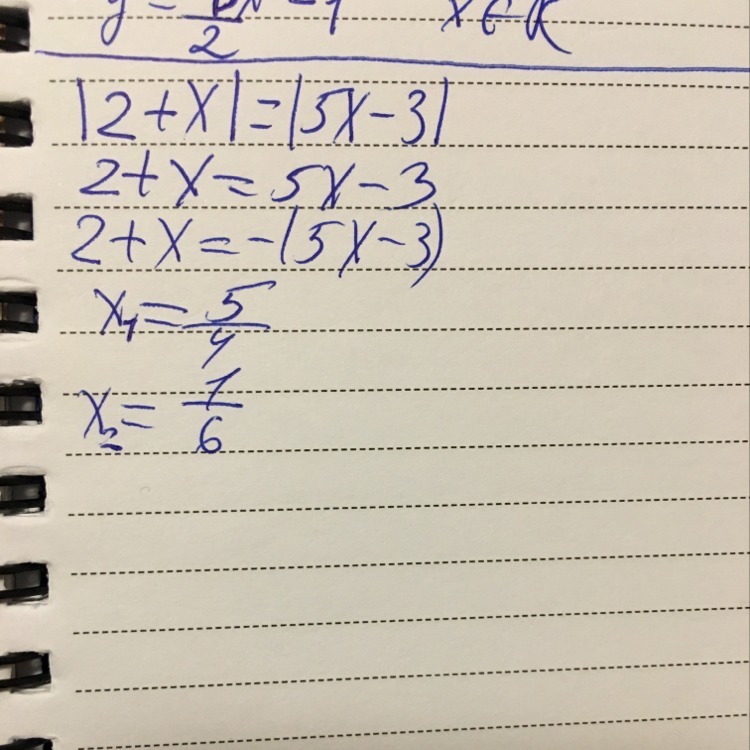 2 x ∈ R
|2+x|=|5x-3|
2+x=5x-3
2+x=-(5x-3)
x₁=5/4
x₂=1/6